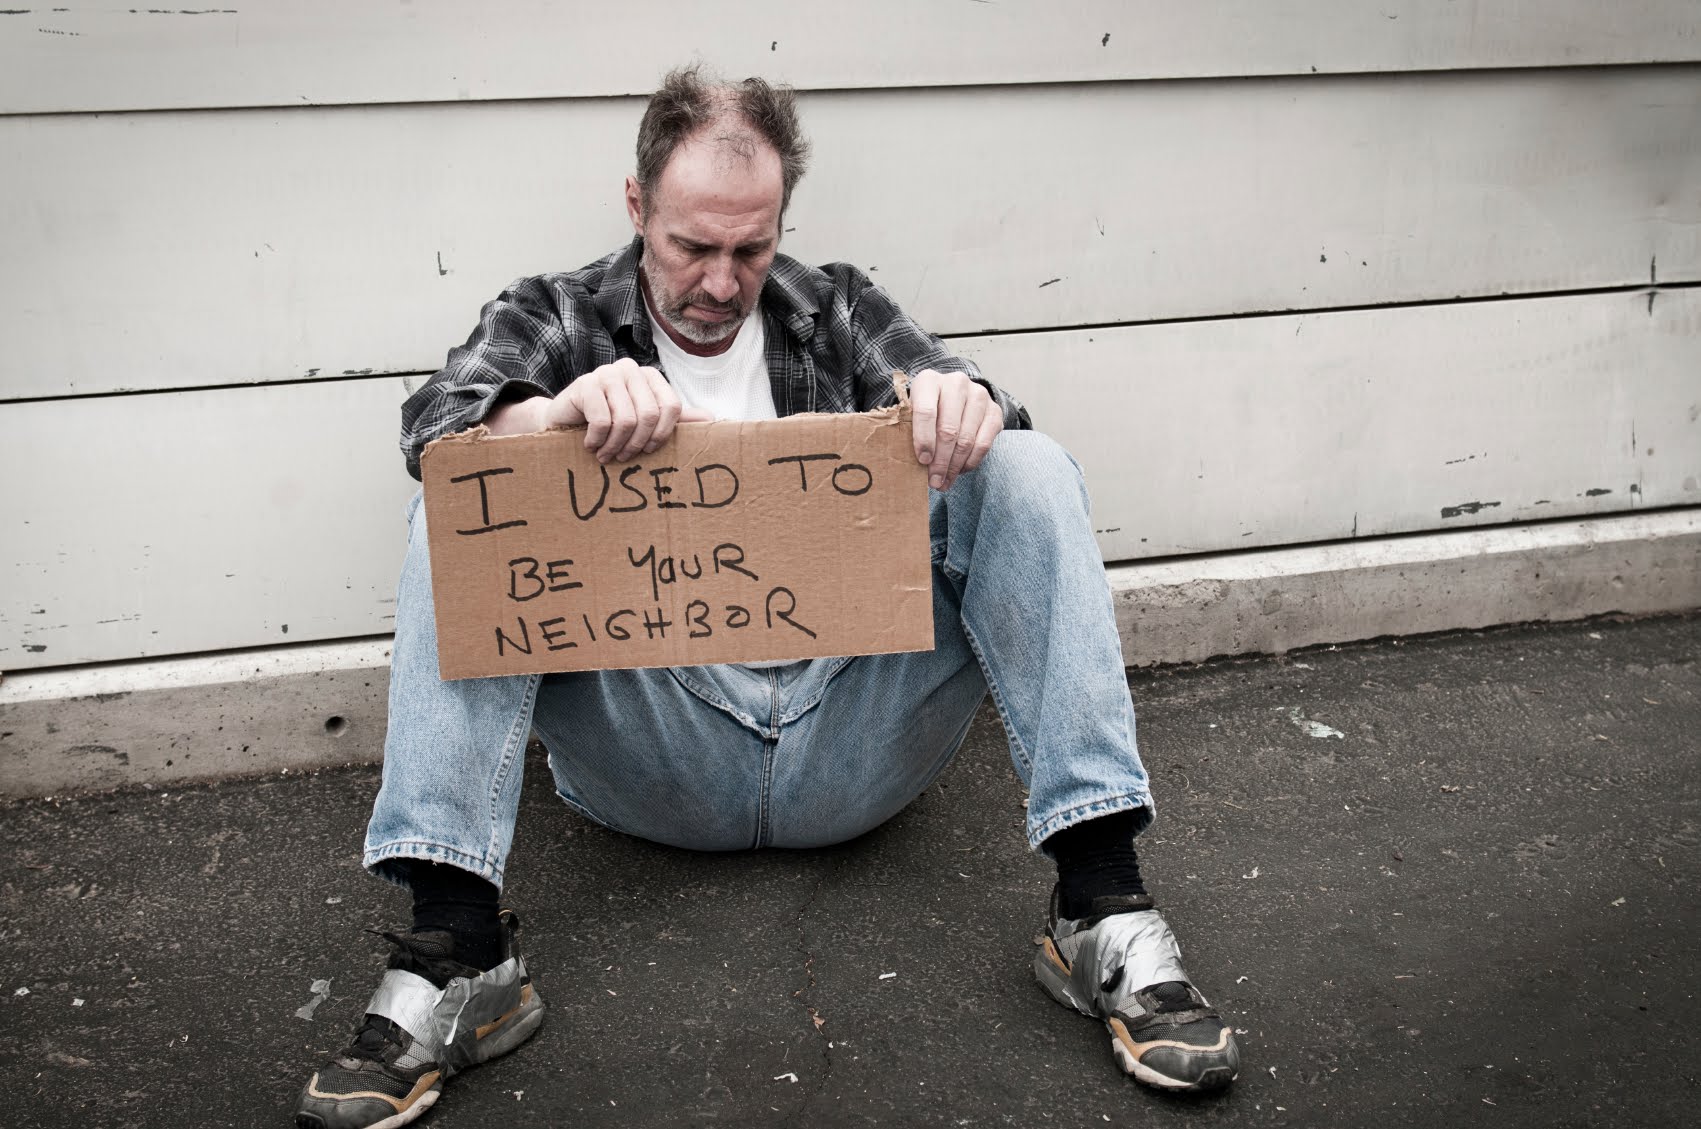 I USED TO
BE YOUR
NEIGHBOR